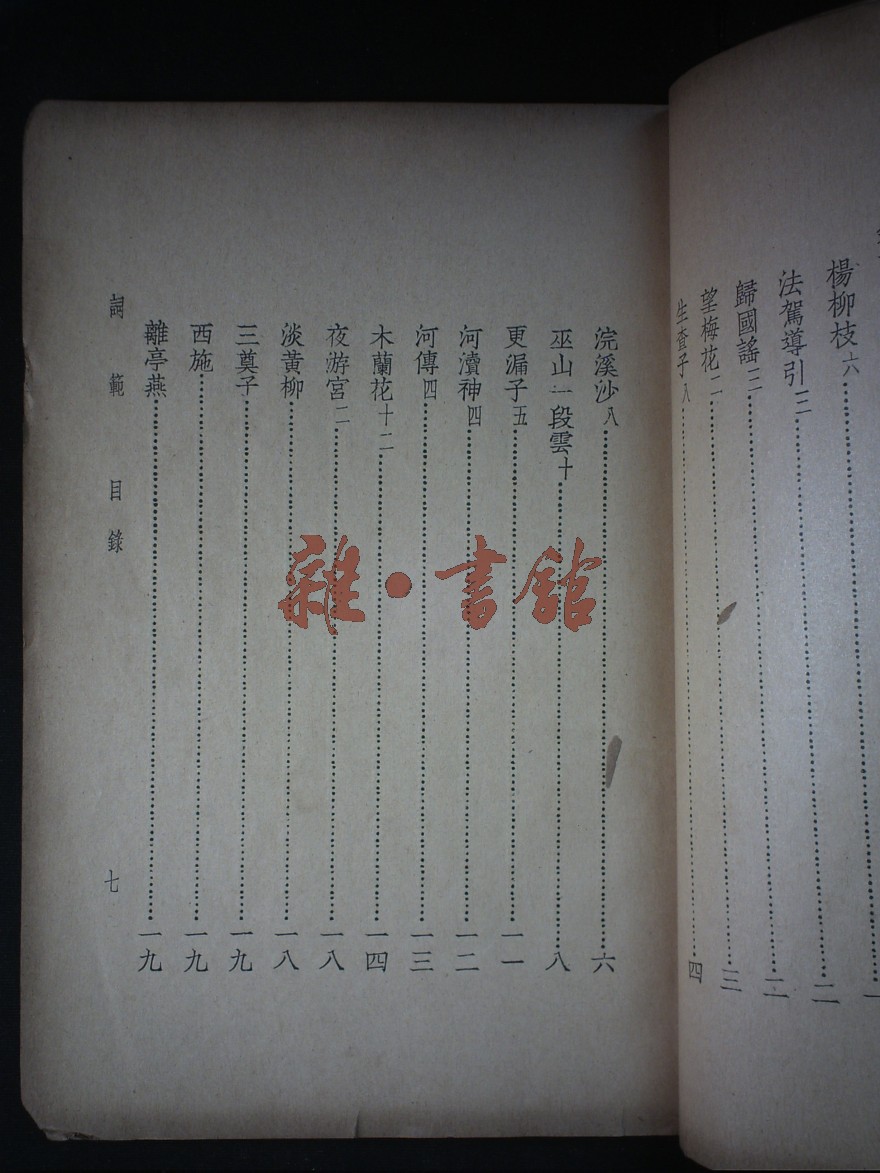 楊柳枝六……一
法駕導引三……二
歸國謠三……二
望梅花二……三
生查子八……四
浣溪沙八……六
巫山一段雲十……八
更漏子五……一一
河瀆神四……一二
河傳四……一三
木蘭花十二……一四
夜游宮二……一八
淡黃柳……一八
三奠子……一九
西施……一九
離亭燕……一九
詞範 目錄 七
雜·書館